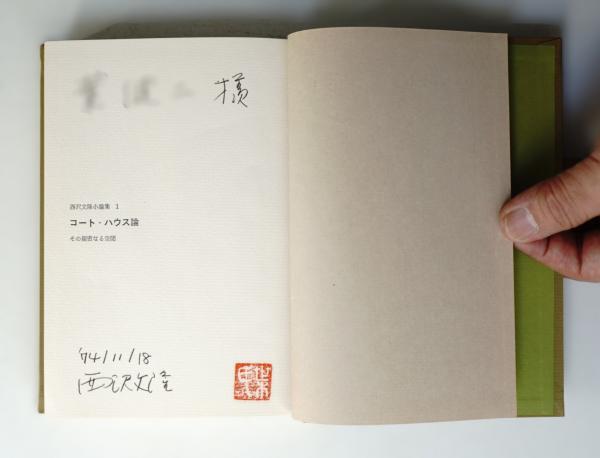 様
西沢文隆小論集 1
コート・ハウス論
その親密なる空間
'74/11/18
西沢文隆